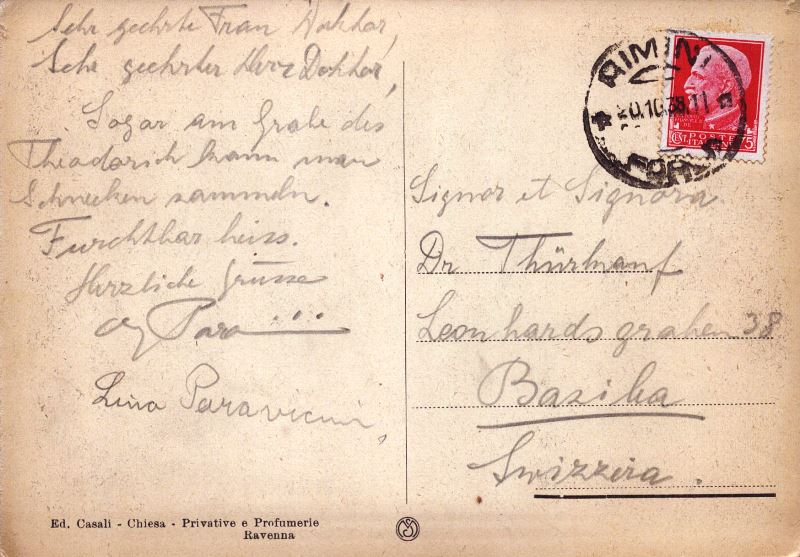 Sehr geehrte Frau Doktor,
Sehr geehrter Herr Doktor,
Sogar am Grabe des
Theodorich kann man
Schnecken sammeln.
Furchtbar heiss.
Herzliche Grüsse
Para...
Lina Paravicini,
Ed. Casali - Chiesa - Privative e Profumerie
Ravenna
RIMINI
.10.38.11
FORLI
POSTE
ITALIANE
75
Signor et Signora
Dr Thürkauf
Leonhardsgraben 38
Basilea
Swizzera.